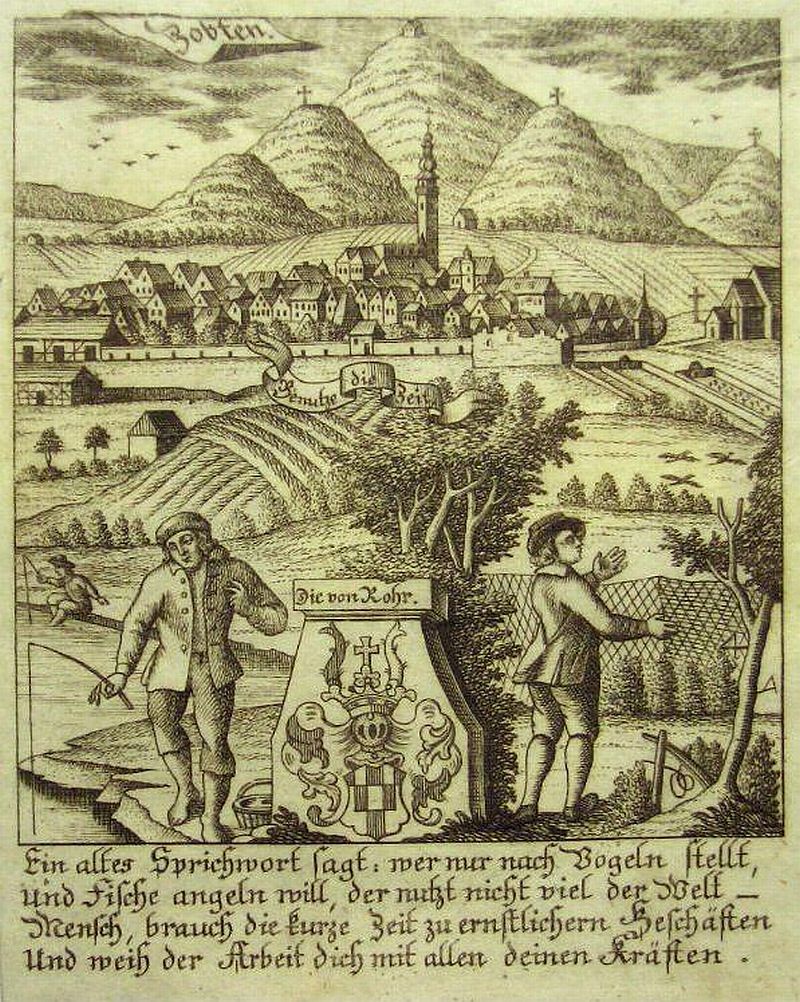 Zobten.
Benutze die Zeit
Die von Rohr.
Ein altes Sprichwort sagt: wer nur nach Vogeln stellt,
Und Fische angeln will, der nutzt nicht viel der Welt —
Mensch, brauch die kurze Zeit zu ernstlichern Geschäften
Und weih der Arbeit dich mit allen deinen Kräften .